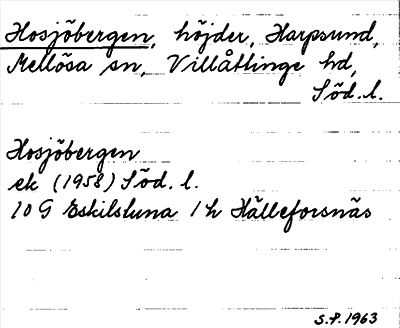 Hosjöbergen, höjder, Harpsund,
Mellösa sn, Villåttinge hd,
Söd.l.
Hosjöbergen
ek (1958) Söd. l.
10 G Eskilstuna 1 h Hälleforsnäs
S.P. 1963